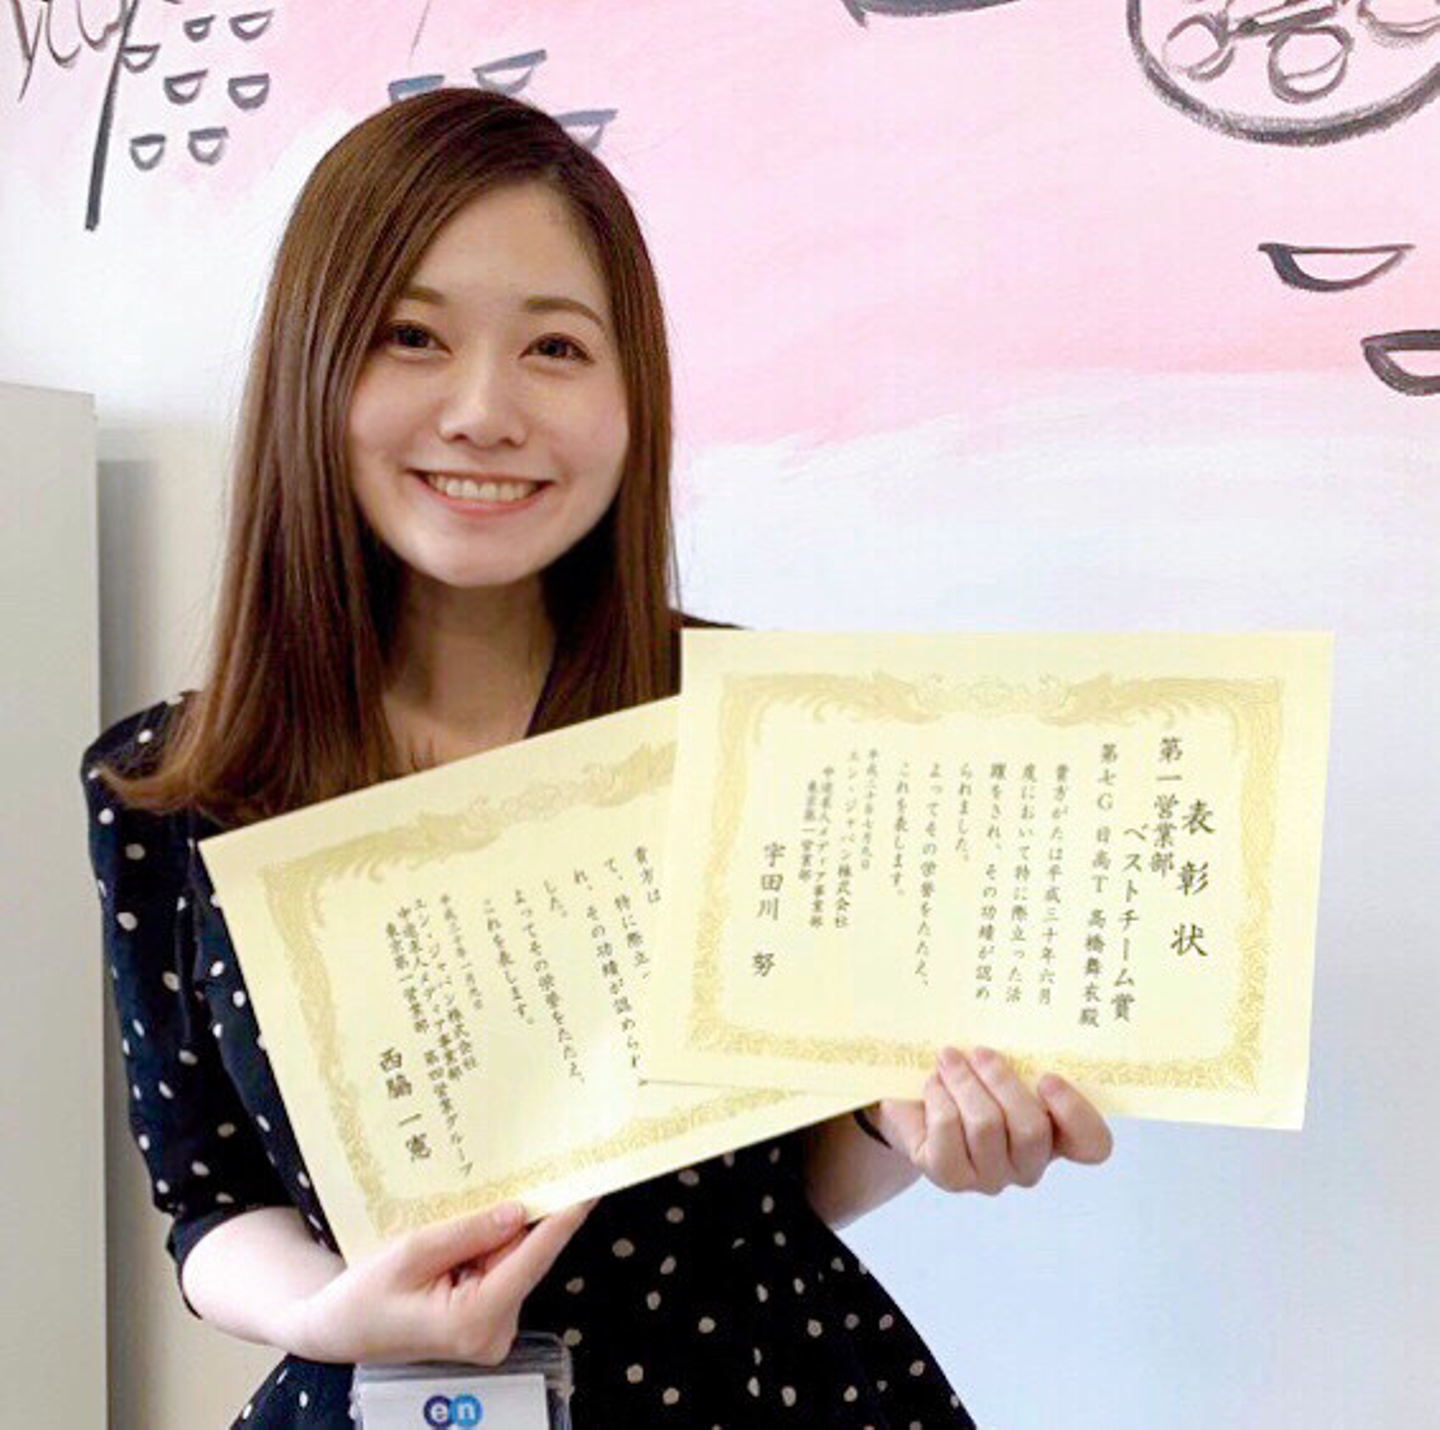 表彰状
第一営業部
ベストチーム賞
第七G 日高T 高橋舞衣殿
貴方がたは平成三十年六月
度において特に際立った活
躍をされ、その功績が認め
られました。
よってその栄誉をたたえ、
これを表します。
平成三十年七月九日
エン・ジャパン株式会社
中途求人メディア事業部
東京第一営業部
宇田川 努
貴方は
て、特に際立
れ、その功績が認められ
した。
よってその栄誉をたたえ、
これを表します。
エン・ジャパン株式会社
中途求人メディア事業部
東京第一営業部 第四営業グループ
西脇 一憲
en